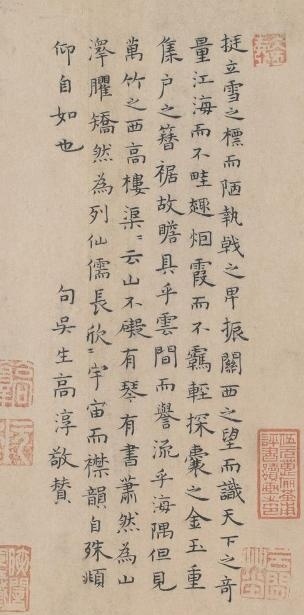 挺立雪之標而陋執戟之卑振關西之望而識天下之奇
量江海而不畦趣烟霞而不羈輕探囊之金玉重
集户之簪裾故瞻具乎雲間而譽流乎海隅但見
萬竹之西高樓渠〻云山不礙有琴有書蕭然為山
澤臞矯然為列仙儒長欣〻宇宙而襟韻自殊頫
仰自如也
句吳生高淳敬贊